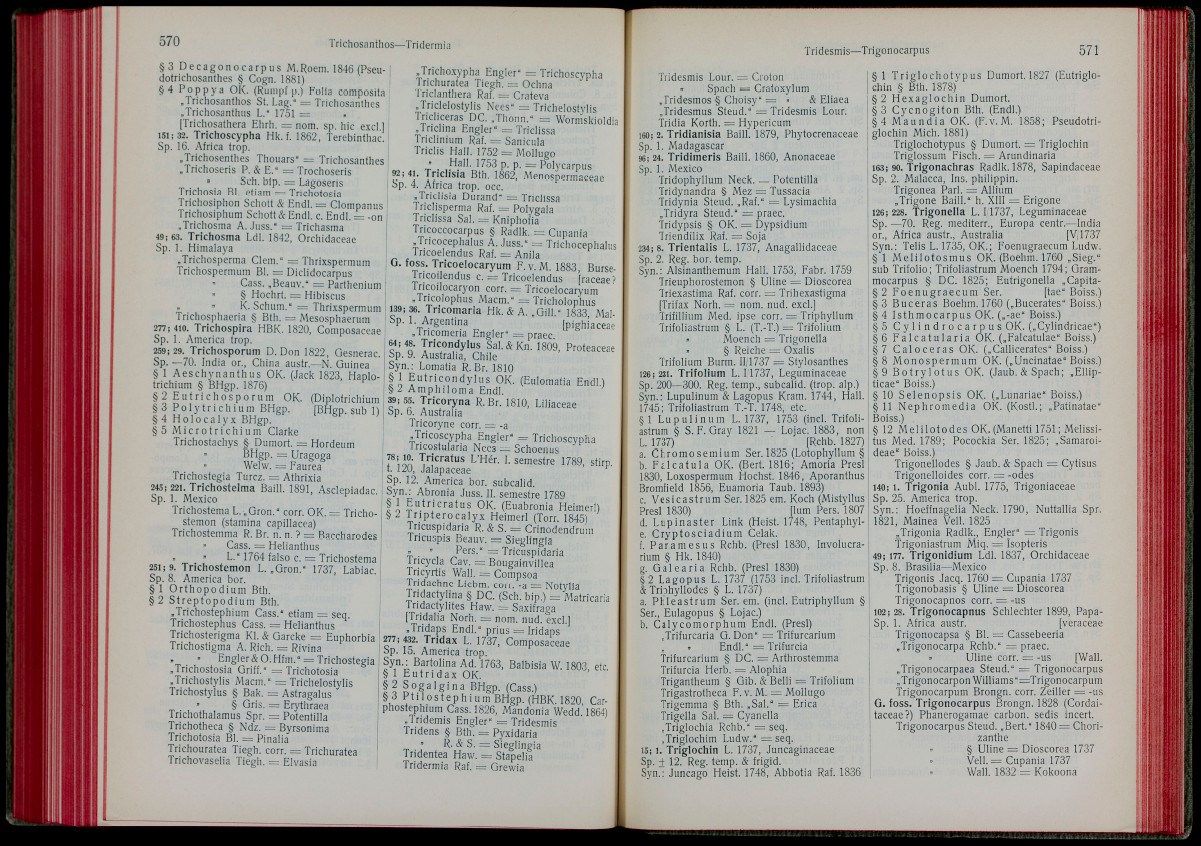 570
Trichosanthos—Tridermia
§ 3 Decagonocarpus M.Roem. 1846 (Pseu-
dotrichosanthes § Cogn. 1881)
§ 4 Poppya OK. (Rumpf p.) Folia composita
„Trichosanthos St. Lag.“ = Trichosanthes
„Trichosanthus L.“ 1751 = „
[Trichosathera Ehrh. = nom. sp. hic excl.]
151; 32. Trichoscypha Hk. f. 1862, Terebinthac.
Sp. 16. Africa trop.
„Trichosenthes Thouars“ = Trichosanthes
„Trichoseris P. & E.“ = Trochoseris
„ Sch. bip. = Lagoseris
Trichosia Bl. etiam = Trichotosia
Trichosiphon Schott & Endl. = Clompanus
Trichosiphum Schott & Endl. c. Endl. = -on
„Trichosma A. Juss.“ = Trichasma
49; 63. Trichosma Ldl. 1842, Orchidaceae
Sp. 1. Himalaya
„Trichosperma Clem.“ = Thrixspermum
Trichospermum Bl. = Diclidocarpus
„ Cass. „Beauv.“ = Parthenium
„ § Hochrt. = Hibiscus
„ „ K. Schum.“ = Thrixspermum
Trichosphaeria § Bth. = Mesosphaerum
277; 410. Trichospira HBK. 1820, Composaceae
Sp. 1. America trop.
259; 29. Trichosporum D. Don 1822, Gesnerac.
Sp. —70. India or., China austr.—N. Guinea
§ 1 Aeschynanthus OK. (Jack 1823, Haplo-
trichium § BHgp. 1876)
§ 2 Eutrichosporum OK. (Diplotrichium
§ 3 Polytrichium BHgp. [BHgp. sub 1)
§ 4 Holocalyx BHgp.
§ 5 Microtrichium Clarke
Trichostachys § Dumort. = Hordeum
„ BHgp. = Uragoga
„ Welw. = Faurea
Trichostegia Turcz. = Athrixia
245; 221. Trichostelma Baill. 1891, Asclepiadac.
Sp. 1. Mexico
Trichostema L. „Gron.“ corr. OK. = Tricho-
stemon (stamina capillacea)
Trichostemma R. Br. n. n. ? = Baccharodes
„ Cass. = Helianthus
„ L.“ 1764 falso c. = Trichostema
251; 9. Trichostemon L. „Gron.“ 1737, Labiac.
Sp. 8. America bor.
§ 1 Orthopodium Bth.
§ 2 Streptopodium Bth.
„Trichostephium Cass.“ etiam = seq.
Trichostephus Cass. = Helianthus
Trichosterigma Kl. & Garcke = Euphorbia
Trichostigma A. Rich. = Rivina
„ „ Engler & O. Hfm.“ = Trichostegia
„Trichostosia Griff.“ = Trichotosia
„Trichostylis Macm.“ = Trichelostylis
Trichostylus § Bak. = Astragalus
„ § Gris. = Erythraea
Trichothalamus Spr. = Potentilla
Trichotheca § Ndz. = Byrsonima
Trichotosia Bl. = Pinalia
Trichouratea Tiegh. corr. = Trichuratea
Trichovaselia Tiegh. = Elvasia
„Trichoxypha Engler“ = Trichoscypha
Trichuratea Tiegh. = Ochna
Triclanthera Raf. = Crateva
„Triclelostylis Nees“ = Trichelostylis
Tricliceras DC. „Thonn.“ = Wormskioldia
„Triclina Engler“ = Triclissa
Triclinium Raf. = Sanicula
Triclis Hall. 1752 = Mollugo
„ Hall. 1753 p. p. = Polycarpus
92; 41. Triclisia Bth. 1862, Menospermaceae
Sp. 4. Africa trop. occ.
„Triclisia Durand“ = Triclissa
Triclisperma Raf. = Polygala
Triclissa Sal. = Kniphofia
Tricoccocarpus § Radlk. = Cupania
„Tricocephalus A. Juss.“ = Trichocephalus
Tricoelendus Raf. = Anila
G. foss. Tricoelocaryum F. v. M. 1883, Burse-
Tricoilendus c. = Tricoelendus [raceae?
Tricoilocaryon corr. = Tricoelocaryum
„Tricolophus Macm.“ = Tricholophus
139; 36. Tricomaria Hk. & A. „Gill.“ 1833, Mal-
Sp. 1. Argentina [pighiaceae
„Tricomeria Engler“ = praec.
64; 48. Tricondylus Sal. & Kn. 1809, Proteaceae
Sp. 9. Australia, Chile
Syn.: Lomatia R. Br. 1810
§ 1 Eutricondylus OK. (Eulomatia Endl.)
§ 2 Amphiloma Endl.
39; 55. Tricoryna R. Br. 1810, Liliaceae
Sp. 6. Australia
Tricoryne corr. = -a
„Tricoscypha Engler“ = Trichoscypha
Tricostularia Nees = Schoenus
78; 10. Tricratus L'Hér. I. semestre 1789, stirp.
t. 120, Jalapaceae
Sp. 12. America bor. subcalid.
Syn.: Abronia Juss. II. semestre 1789
§ 1 Eutricratus OK. (Euabronia Heimerl)
§ 2 Tripterocalyx Heimerl (Torr. 1845)
Tricuspidaria R. & S. = Crinodendrum
Tricuspis Beauv. = Sieglingia
„ „ Pers.“ = Tricuspidaria
Tricycla Cav. = Bougainvillea
Tricyrtis Wall. = Compsoa
Tridachne Liebm. corr. -a = Notylia
Tridactylina § DC. (Sch. bip.) = Matricaria
Tridactylites Haw. = Saxifraga
[Tridalia Norh. = nom. nud. excl.]
„Tridaps Endl.“ prius = Iridaps
277; 432. Tridax L. 1737, Composaceae
Sp. 15. America trop.
Syn.: Bartolina Ad. 1763, Balbisia W. 1803, etc.
§ 1 Eutridax OK.
§ 2 Sogalgina BHgp. (Cass.)
§ 3 Ptilostephium BHgp. (HBK. 1820, Car-
phostephium Cass. 1826, Mandonia Wedd. 1864)
„Tridemis Engler“ = Tridesmis
Tridens § Bth. = Pyxidaria
„ R. & S. = Sieglingia
Tridentea Haw. = Stapelia
Tridermia Raf. = Grewia
Tridesmis—Trigonocarpus
571
Tridesmis Lour. = Croton
„ Spach = Cratoxylum
„Tridesmos § Choisy“ = „ & Eliaea
„Tridesmus Steud.“ = Tridesmis Lour.
Tridia Korth. = Hypericum
160; 2. Tridianisia Baill. 1879, Phytocrenaceae
Sp. 1. Madagascar
96; 24. Tridimeris Baill. 1860, Anonaceae
Sp. 1. Mexico
Tridophyllum Neck. = Potentilla
Tridynandra § Mez = Tussacia
Tridynia Steud. „Raf.“ = Lysimachia
„Tridyra Steud.“ = praec.
Tridypsis § OK. = Dypsidium
Triendilix Raf. = Soja
234; 8. Trientalis L. 1737, Anagallidaceae
Sp. 2. Reg. bor. temp.
Syn.: Alsinanthemum Hall. 1753, Fabr. 1759
Trieuphorostemon § Uline = Dioscorea
Triexastima Raf. corr. = Trihexastigma
[Trifax Norh. = nom. nud. excl.]
Trifillium Med. ipse corr. = Triphyllum
Trifoliastrum § L. (T.-T.) = Trifolium
„ Moench = Trigonella
„ § Reiche = Oxalis
Trifolium Burm. II/1737 = Stylosanthes
126; 231. Trifolium L. I/1737, Leguminaceae
Sp. 200—300. Reg. temp., subcalid. (trop. alp.)
Syn.: Lupulinum & Lagopus Kram. 1744, Hall.
1745; Trifoliastrum T.-T. 1748, etc.
§ 1 Lupulinum L. 1737, 1753 (incl. Trifoli-
astrum § S. F. Gray 1821 — Lojac. 1883, non
L. 1737) [Rchb. 1827)
a. Chromosemium Ser. 1825 (Lotophyllum §
b. Falcatula OK. (Bert. 1816; Amoria Presl
1830, Loxospermum Hochst. 1846, Aporanthus
Bromfield 1856, Euamoria Taub. 1893)
c. Vesicastrum Ser. 1825 em. Koch (Mistyllus
Presl 1830) [lum Pers. 1807
d. Lupinaster Link (Heist. 1748, Pentaphyl-
e. Cryptosciadium Celak.
f. Paramesus Rchb. (Presl 1830, Involucra-
rium § Hk. 1840)
g. Galearia Rchb. (Presl 1830)
§ 2 Lagopus L. 1737 (1753 incl. Trifoliastrum
& Triphyllodes § L. 1737)
a. Phleastrum Ser. em. (incl. Eutriphyllum §
Ser., Eulagopus § Lojac.)
b. Calycomorphum Endl. (Presl)
„Trifurcaria G. Don“ = Trifurcarium
„ „ Endl.“ = Trifurcia
Trifurcarium § DC. = Arthrostemma
Trifurcia Herb. = Alophia
Trigantheum § Gib. & Belli = Trifolium
Trigastrotheca F. v. M. = Mollugo
Trigemma § Bth. „Sal.“ = Erica
Trigella Sal. = Cyanella
„Triglochia Rchb.“ = seq.
„Triglochim Ludw.“ = seq.
15; 1. Triglochin L. 1737, Juncaginaceae
Sp. ± 12. Reg. temp. & frigid.
Syn.: Juncago Heist. 1748, Abbotia Raf. 1836
§ 1 Triglochotypus Dumort. 1827 (Eutriglo-
chin § Bth. 1878)
§ 2 Hexaglochin Dumort.
§ 3 Cycnogiton Bth. (Endl.)
§ 4 Maundia OK. (F. v. M. 1858; Pseudotri-
glochin Mich. 1881)
Triglochotypus § Dumort. = Triglochin
Triglossum Fisch. = Arundinaria
163; 90. Trigonachras Radlk. 1878, Sapindaceae
Sp. 2. Malacca, Ins. philippin.
Trigonea Parl. = Allium
„Trigone Baill.“ h. XIII = Erigone
126; 228. Trigonella L. I/1737, Leguminaceae
Sp. —70. Reg. mediterr., Europa centr.—India
or., Africa austr., Australia [V/1737
Syn.: Telis L. 1735, OK.; Foenugraecum Ludw.
§ 1 Melilotosmus OK. (Boehm. 1760 „Sieg.“
sub Trifolio; Trifoliastrum Moench 1794; Gram-
mocarpus § DC. 1825; Eutrigonella „Capita-
§ 2 Foenugraecum Ser. [tae“ Boiss.)
§ 3 Buceras Boehm. 1760 („Bucerates“ Boiss.)
§ 4 Isthmocarpus OK. („-ae“ Boiss.)
§ 5 Cylindrocarpus OK. („Cylindricae“)
§ 6 Falcatularia OK. („Falcatulae“ Boiss.)
§ 7 Caloceras OK. („Callicerates“ Boiss.)
§ 8 Monospermum OK. („Uncinatae“ Boiss.)
§ 9 Botrylotus OK. (Jaub. & Spach; „Ellip-
ticae“ Boiss.)
§ 10 Selenopsis OK. („Lunariae“ Boiss.)
§ 11 Nephromedia OK. (Kostl.; „Patinatae“
Boiss.)
§ 12 Melilotodes OK. (Manetti 1751; Melissi-
tus Med. 1789; Pocockia Ser. 1825; „Samaroi-
deae“ Boiss.)
Trigonellodes § Jaub. & Spach = Cytisus
Trigonelloides corr. = -odes
140; 1. Trigonia Aubl. 1775, Trigoniaceae
Sp. 25. America trop.
Syn.: Hoeffnagelia Neck. 1790, Nuttallia Spr.
1821, Mainea Vell. 1825
„Trigonia Radlk., Engler“ = Trigonis
Trigoniastrum Miq. = Isopteris
49; 177. Trigonidium Ldl. 1837, Orchidaceae
Sp. 8. Brasilia—Mexico
Trigonis Jacq. 1760 = Cupania 1737
Trigonobasis § Uline = Dioscorea
Trigonocapnos corr. = -us
102; 28. Trigonocapnus Schlechter 1899, Papa-
Sp. 1. Africa austr. [veraceae
Trigonocapsa § Bl. = Cassebeeria
„Trigonocarpa Rchb.“ = praec.
„ Uline corr. = -us [Wall.
„Trigonocarpaea Steud.“ = Trigonocarpus
„Trigonocarpon Williams“=Trigonocarpum
Trigonocarpum Brongn. corr. Zeiller = -us
G. foss. Trigonocarpus Brongn. 1828 (Cordai-
taceae?) Phanerogamae carbon. sedis incert.
Trigonocarpus Steud. „Bert.“ 1840 = Chori-
zanthe
„ § Uline = Dioscorea 1737
„ Vell. = Cupania 1737
„ Wall. 1832 = Kokoona